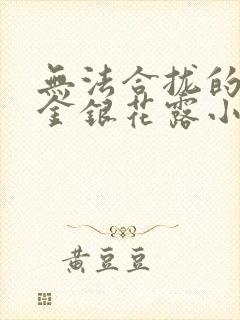 無法合拢的
金銀花露小
黄豆豆